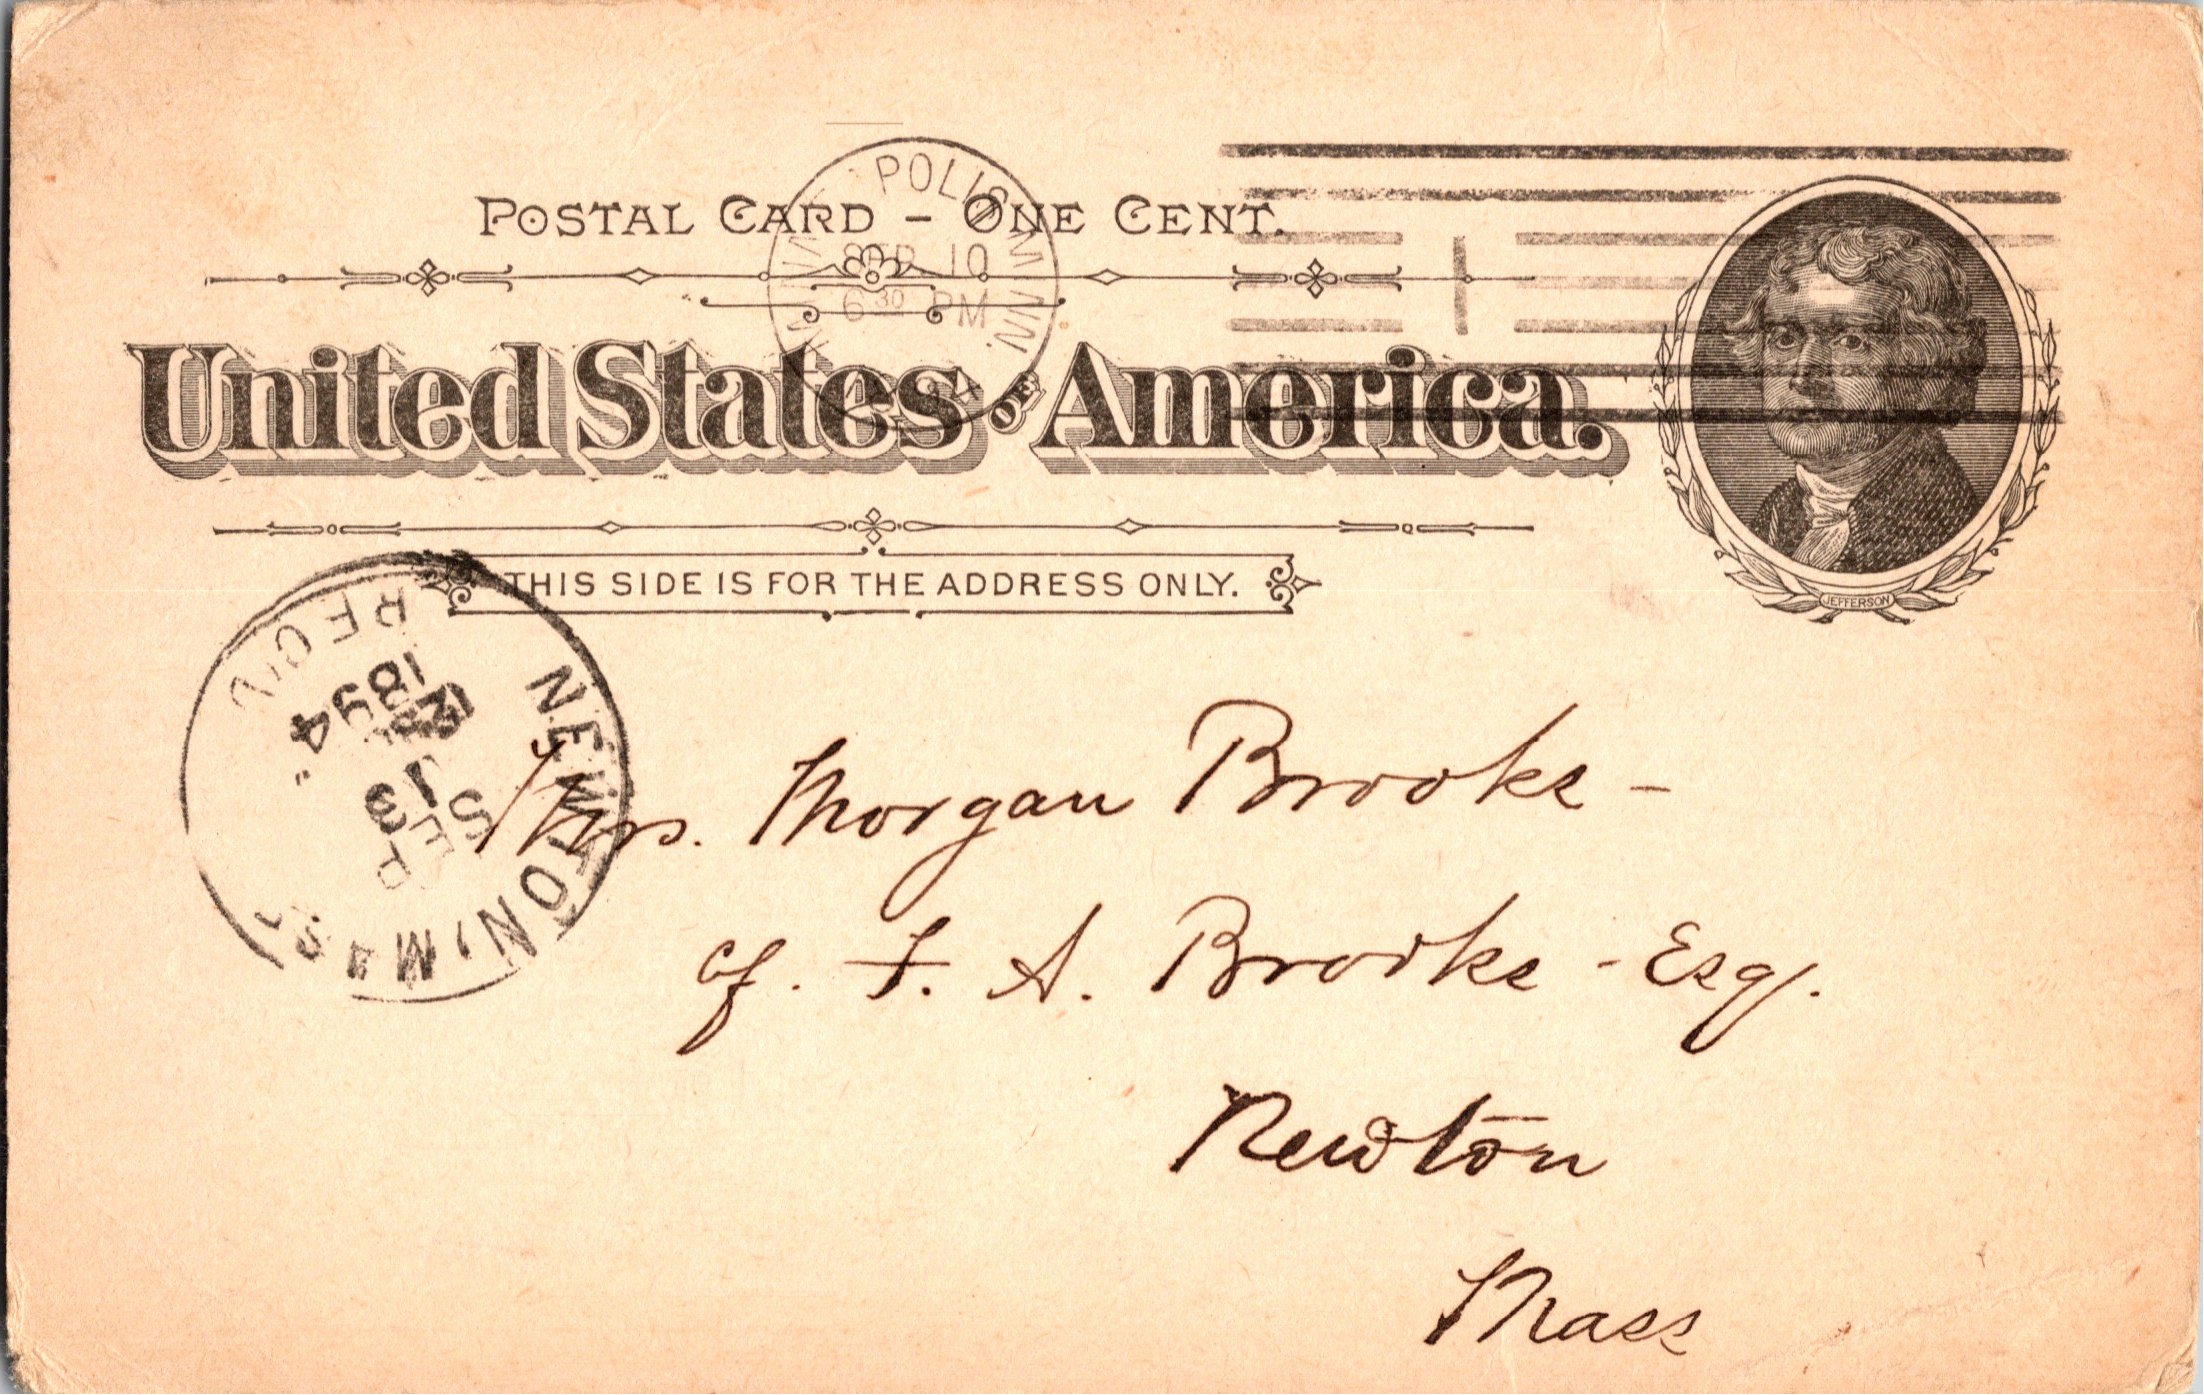 POSTAL CARD – ONE CENT.
POLIS MINN.
SEP 10
6 30 PM
United States OF America.
JEFFERSON
THIS SIDE IS FOR THE ADDRESS ONLY.
NEWTON, MASS.
SEP
13
1894
REC'V
Mrs. Morgan Brooks –
cf. F. A. Brooks - Esq.
Newton
Mass